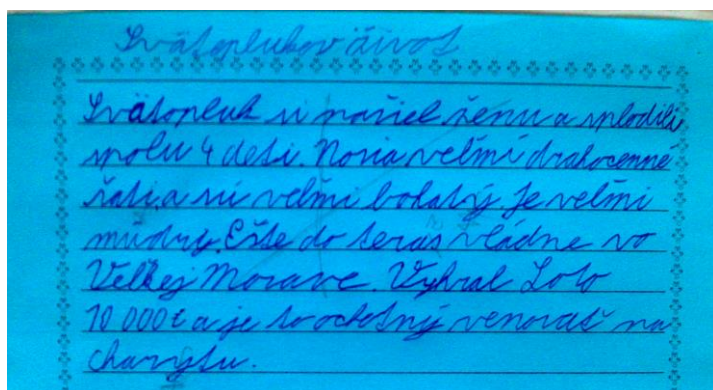 Svätoplukov život
Svätopluk si našiel ženu a splodili
spolu 4 deti. Nosia veľmi drahocenné
šati a sú veľmi bohatý. Je veľmi
múdry. Ešte do teras vládne vo
Veľkej Morave. Vyhral Loto
10 000€ a je to ochotný venovať na
charytu.